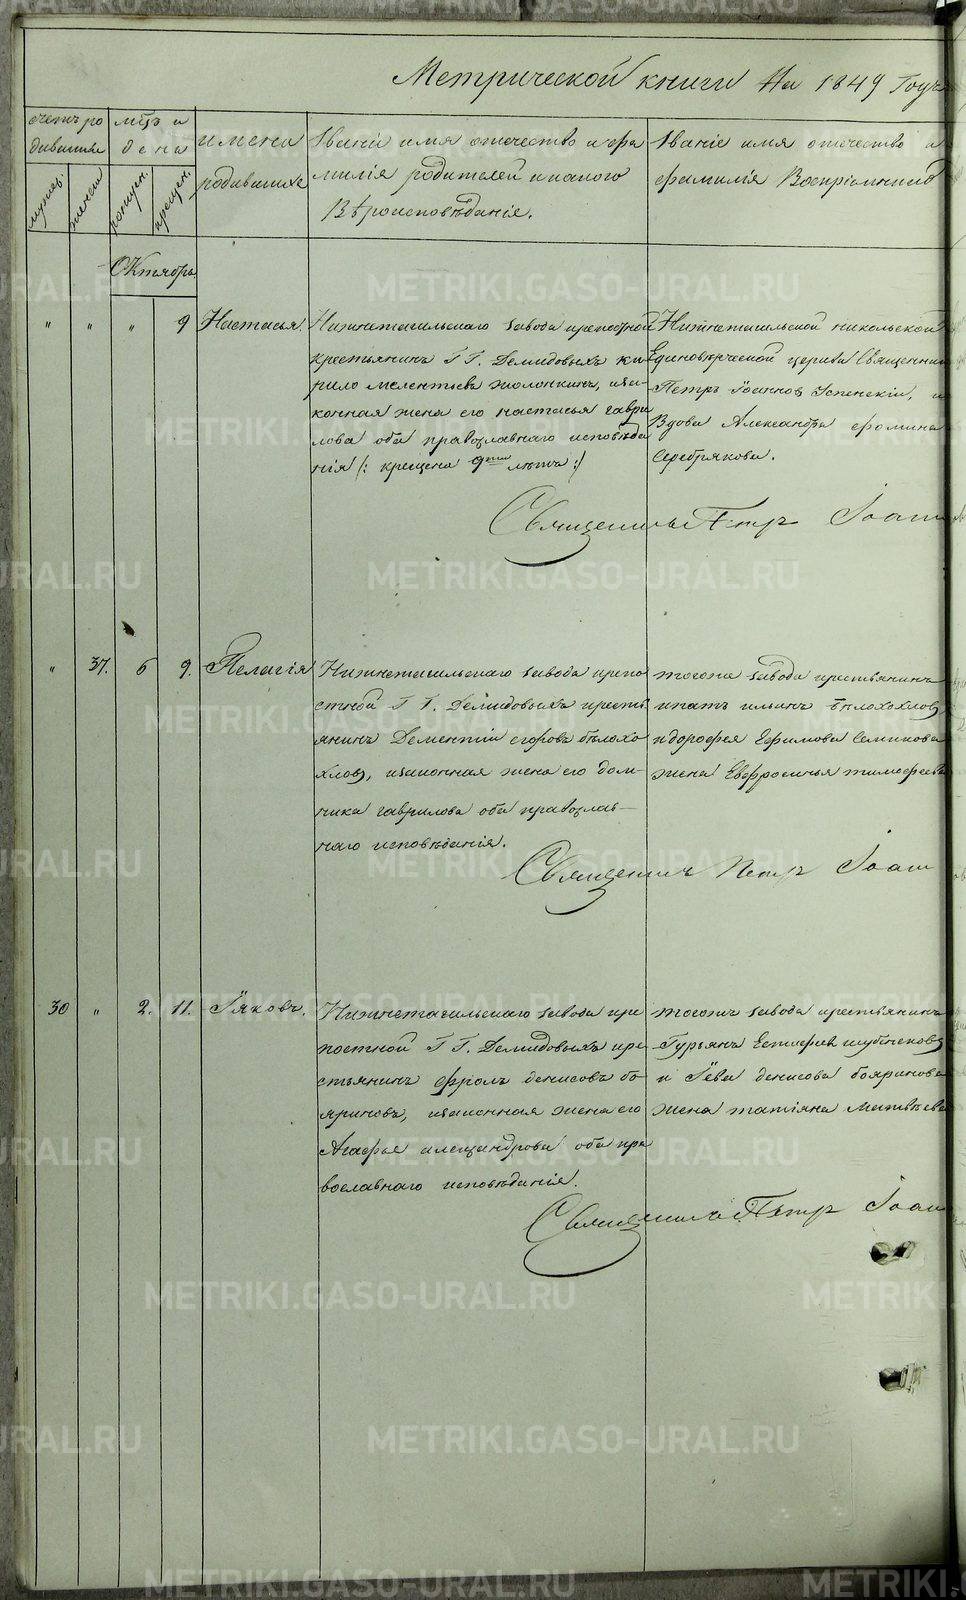 Метрической книги На 1849 Годъ
счетъ ро
дившихся
мужес:
женска
мѣць и
день
рожден.
крещен.
имена
родившихся
Званіе имя отечество и фа
милія родителей и какого
Вѣроисповѣданія.
Званіе имя отечество и
фамилія Воспріемнико
Октябрь
" " " 9 Настасья.
Нижнетагильскаго завода крепостной
крестьянинъ Г. Г. Демидовыхъ ки
рило мелентьевъ жолонкинъ, иза
конная жена его настасья гаври
лова оба православнаго исповѣда
нія /: крещена 9ти лѣтъ :/
Нижнетагильской никольской
Единоверческой церкви Священник
Петръ Іоанновъ Успенскій, и
Вдова Александра фомина
Серебрякова.
Священникъ Петр Іоан
" 37. 6 9. Пелагія
Нижнетагильскаго завода крепо
стной Г. Г. Демидовыхъ кресть
янинъ Дементій егоровъ бѣлохо
хловъ, изаконная жена его дом-
ника гаврилова оба православ-
наго исповѣданія.
тогоже завода крестьянинъ
ипатъ ильинъ бѣлохохловъ
и дорофея Ефимова Семикова
жена Евфросинья тимофеева
Священникъ Петр Іоан
30 " 2. 11. Іяковъ.
Нижнетагильскаго завода кре
постной Г. Г. Демидовыхъ кре
стьянинъ фролъ денисовъ бо
яриновъ, изаконная жена его
Агафья александрова оба пра
вославнаго исповѣданія.
тогожъ завода крестьянинъ
Гурьянъ Естифеев шубенковъ
и Іева денисова бояринова
жена татіяна Матвѣева
Священникъ Петр Іоан
METRIKI.GASO-URAL.RU